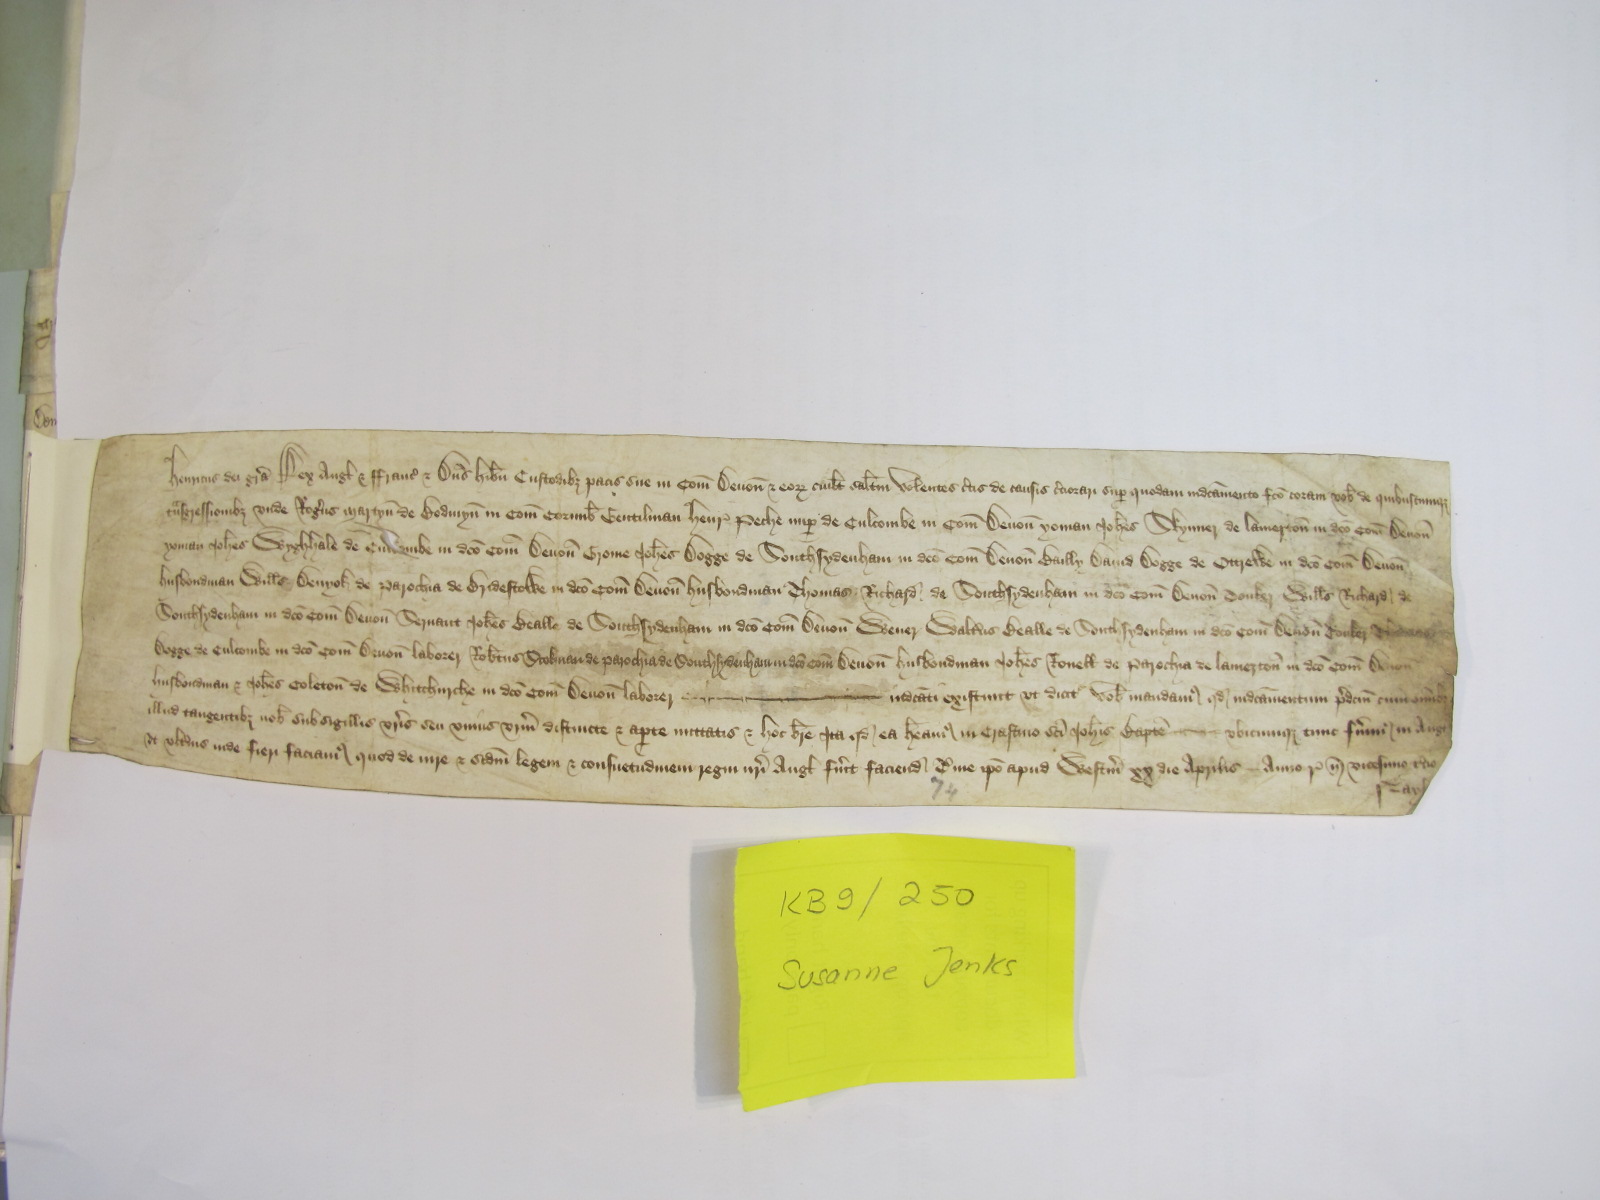 Henricus dei gr̄a Rex Angł & ffranc̄ & Dn̄s hib̄n Custodib3 pacis sue in Com̄ Devon̄ & eor̄ cuił̄t sal̄tm Volentes c̄tis de causis c̄ciorari sup̄ quodam indic̄amento f̄co coram vob̄ de quibuscumq3
tn̄sgressionib3 vnde Roḡus Martyn̄ de Bodmyn̄ in Com̄ Cornub̄ Gentilman Henr̄ Peche nup̄ de Culcombe in Com̄ Devon̄ yoman Joh̄es Skynner de lamerton̄ in d̄co Com̄ Devon̄
yoman Joh̄es Wyghhale de in d̄co Com̄ Devon̄ Grome Joh̄es Dogge de Southsydenham in d̄co Com̄ Devon̄ Bailly David Dogge de in d̄co Com̄ Devon̄
husbondman Wiłłs de Parochia de Brydestowe in d̄co Com̄ Devon̄ husbondman Thomas Richard de Southsydenham in d̄co Com̄ Devon̄ Touker Wiłłs Richard de
Southsydenham in d̄co Com̄ Devon̄ Servant Joh̄es Bealle de Southsydenham in d̄co Com̄ Devon̄ Wever Walt̄us Bealle de Southsydenham in d̄co Com̄ Devon̄ Touker
Dogge de Culcombe in d̄co Com̄ Devon̄ laborer Rob̄tus de parochia de Southsydenham in d̄co Com̄ Devon̄ husbondman Joh̄es de Parochia de lamerton̄ in d̄co Com̄ Devon̄
husbondman & Joh̄es Coleton̄ de Whitchirche in d̄co Com̄ Devon̄ laborer indc̄ati existunt vt dicit̄ vob̄ mandam̄ qd̄ indc̄amentum p̄dc̄m cum om̄ib3
illud tangentib3 nob̄ sub sigillis vr̄is seu vnius vr̄m distincte & ap̄te mittatis & hoc br̄e Ita qd̄ ea h̄eam̄ in Crastino sc̄i Joh̄is Bapt̄e vbicumq3 tunc fu̅im̄ in Angł
vt vlt̄ius inde fieri faciam̄ quod de iure & sc̄dm legem & consuetudinem regni nr̄i Angł fu̅it faciend T̄ me ip̄o apud Westm̄ xx die Aprilis Anno r̄ n̄ vicesimo t̄cio
74
KB9/ 250
Susanne Jenks